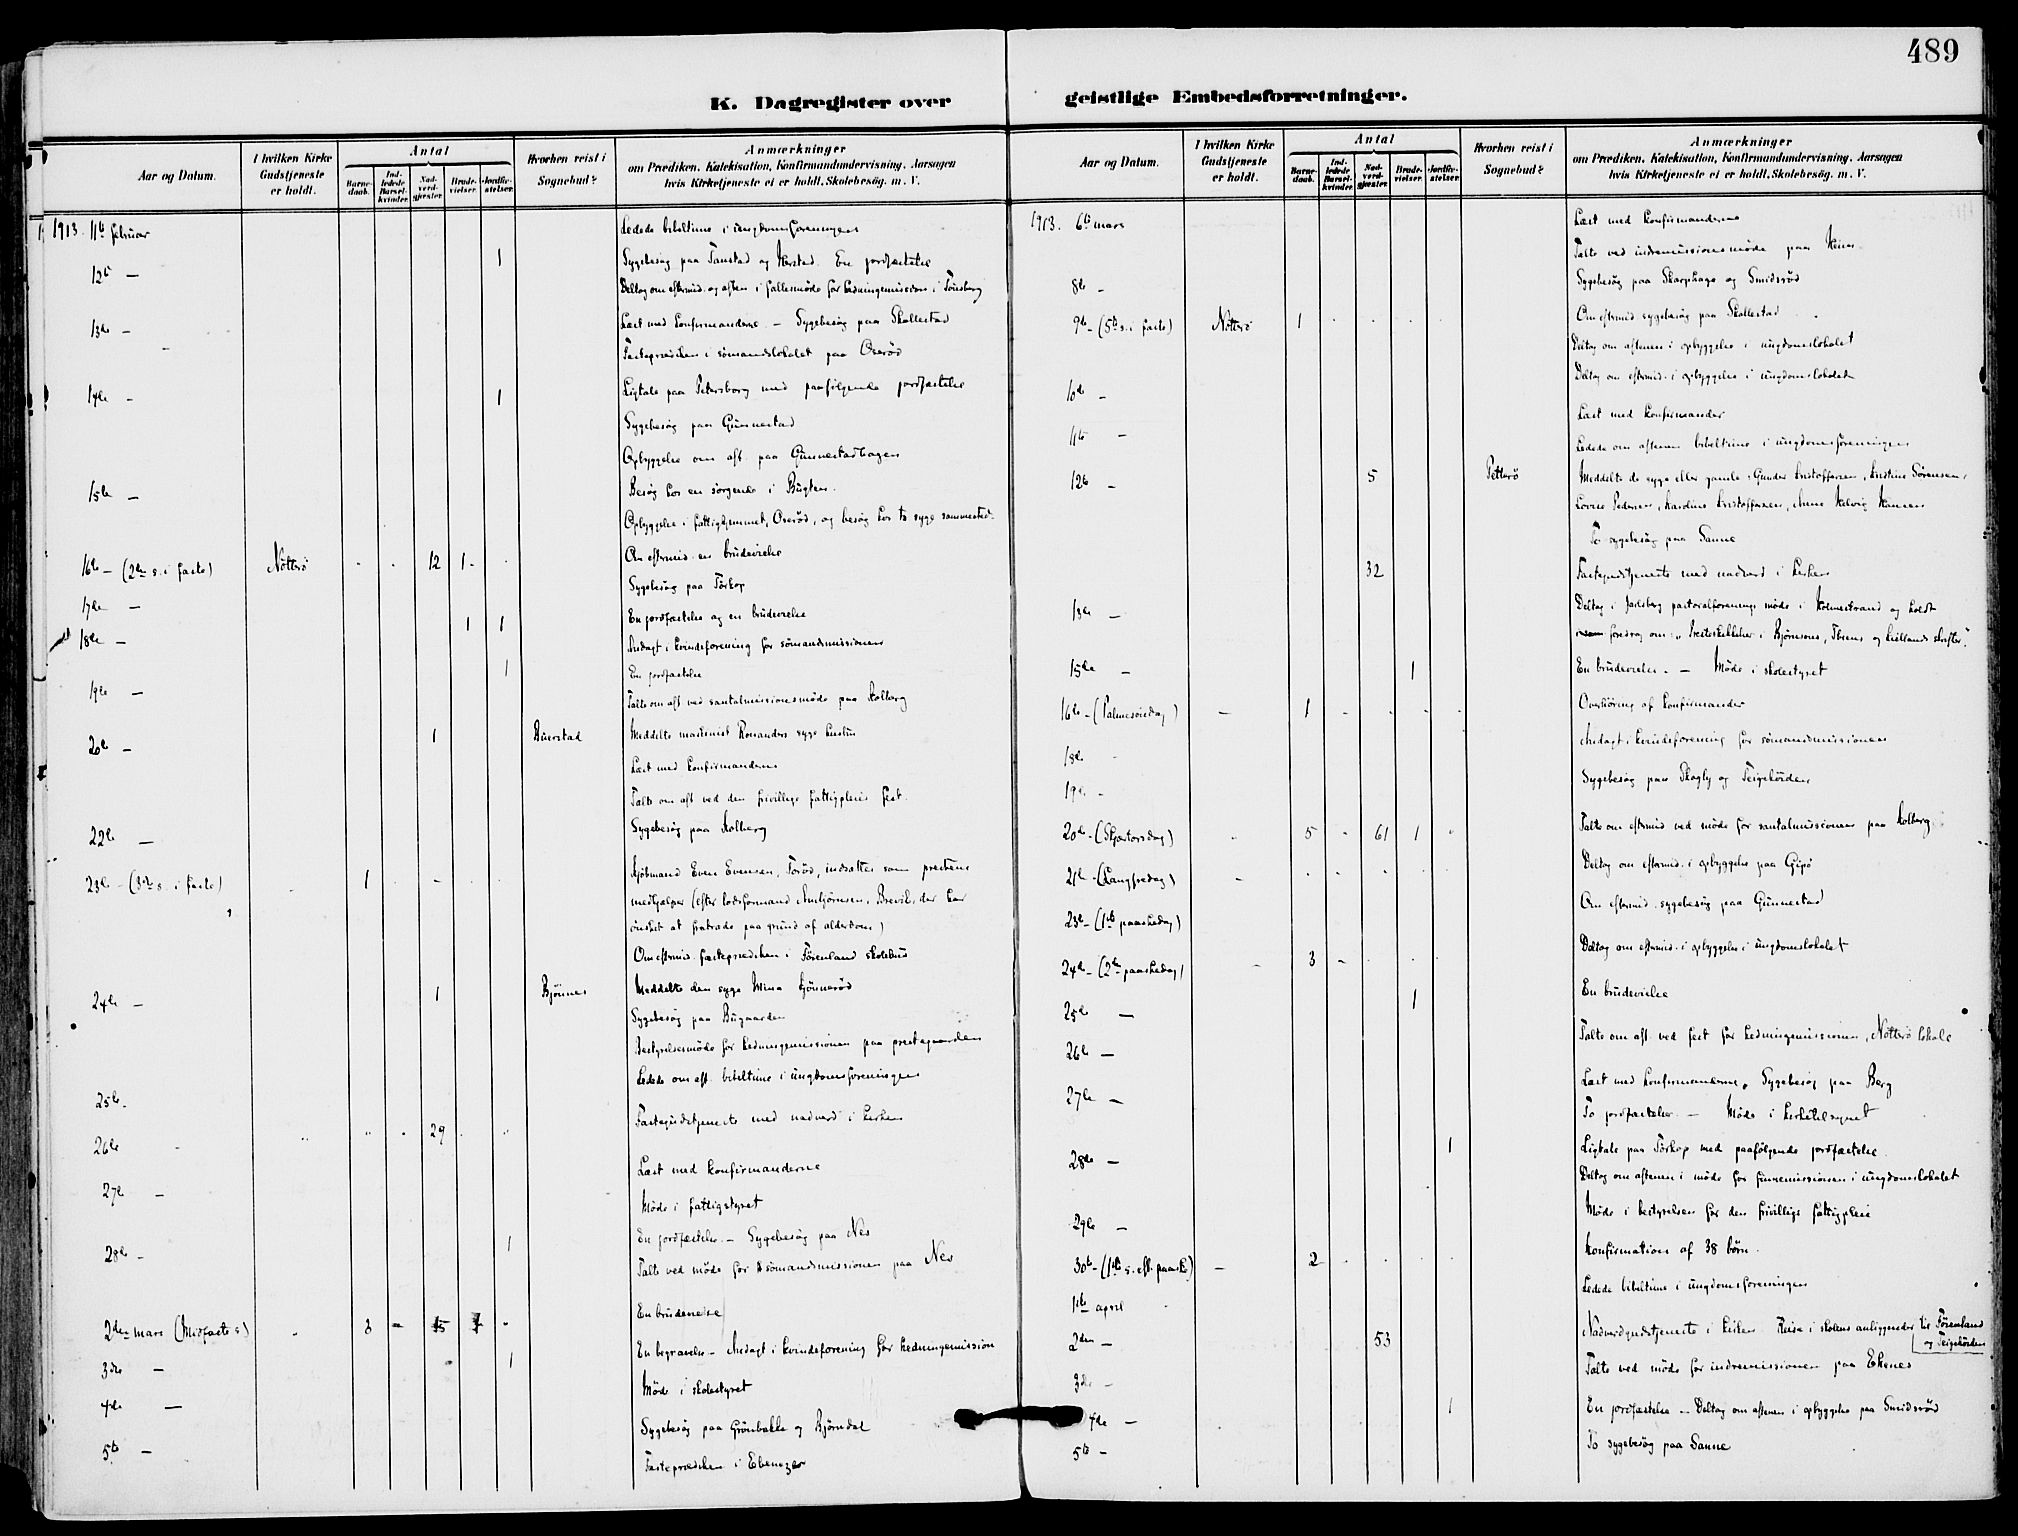 489
K. Dagregister over geistlige Embedsforretninger.
Aar og Datum.
I hvilken Kirke Gudstjeneste er holdt.
Antal
Barnedaab.
Indledede Barselkvinder.
Nadverdgjæster.
Brudevielser.
Jordfæstelser.
Hvorhen reist i Sognebud?
Anmærkninger
om Prædiken, Katekisation, Konfirmandundervisning, Aarsagen
hvis Kirketjeneste ei er holdt, Skolebesøg. m. V.
1913. 11te februar Ledede bibeltime i ungdomsforeningen
12te — 1 Sygebesøg paa Tanstad og Herstad. En jordfæstelse
Deltog om eftermid. og aften i fællesmøde for hedningemissionen i Tønsberg
13de — Læst med konfirmanderne. — Sygebesøg paa Skallestad
Fasteprædiken i sømandslokalet paa Oserød
14de - 1 Ligtale paa Petersborg med paafølgende jordfæstelse
Sygebesøg paa Gunnestad
Opbyggelse om aft. paa Gunnestadhagen
15de — Besøg hos en sørgende i Bugten.
Opbyggelse i fattighjemmet, Oserød, og besøg hos to syge sammesteds.
16de — (2den s. i faste) Nøtterø - - 12 1 - Om eftermid. en brudevielse
Sygebesøg paa Torkop
17de — 1 1 En jordfæstelse og en brudevielse
18de — Andagt i kvindeforening for sømandsmissionen
1 En jordfæstelse
19de — Talte om aft. ved santalmissionsmøde paa Kolberg
20de — 1 Duerstad Meddelte maskinist syge hustru
Læst med konfirmanderne
Talte om aft. ved den frivillige fattigpleies fest.
22de — Sygebesøg paa Kolberg
23de - (3die s. i faste) - 1 - - - - Kjøbmand Even Evensen, Torød, indsattes som prestens
medhjælper (efter lodsformand Arnbjørnsen, Brevik, der har
ønsket at fratræde paa grund af alderdom)
Om eftermid. fasteprædiken i Førenland skolehus
24de — 1 Bjønnes Meddelte den syge Mina Gjønnerød
Sygebesøg paa Bugaarden
Bestyrelsesmøde for hedningemissionen paa prestegaarden
Ledede om aft. bibeltime i ungdomsforeningen
25de -
26de - " " - 29 - " Fastegudstjeneste med nadverd i kirken
27de - Læst med konfirmanderne
Møde i fattigstyret
28de - 1 En jordfæstelse. — Sygebesøg paa Nes
Talte ved møde for sømandsmissionen paa Nes
2den mars (Midfaste s) " 3 - 15 1 " En brudevielse
3die — 1 En begravelse - Andagt i kvindeforening for hedningemission
4de — Møde i skolestyret
Sygebesøg paa Grønbakke og Bjørndal
5te — Fasteprædiken i Ebenezer
1913. 6te mars Læst med konfirmanderne
Talte ved indremissionsmøde paa Heim
8de - Sygebesøg paa Skarphaga og Smidsrød
9de - (5te s. i faste) Nøtterø 1 - - - - Om eftermid. sygebesøg paa Skallestad
Deltog om aftenen i opbyggelse i ungdomslokalet
10de - Deltog om eftermid. i opbyggelse i ungdomslokalet
Læst med konfirmander
11te — Ledede om aftenen bibeltime i ungdomsforeningen
12te - 5 Petterø Meddelte de syge eller gamle: Gunder Kristoffersen, Kristine Sørensen,
Lovise Pedersen, Karoline Kristoffersen, Anne Helvig Hansen
To sygebesøg paa Sanne
32 Fastegudstjeneste med nadverd i kirken
13de — Deltog i Jarlsberg pastoralforenings møde i Holmestrand og holdt
foredrag om: „Presteskikkelser i Bjørnsons, Ibsens og Kiellands skrifter."
15de — 1 En brudevielse. — Møde i skolestyret
16de - (Palmesøndag) — 1 - - - - Overhøring af konfirmander
18de - Andagt i kvindeforening for sømandsmissionen
19de - Sygebesøg paa Skogly og Teigehøiden
20de - (Skjærtorsdag) " 5 - 61 1 " Talte om eftermid. ved møde for santalmissionen paa Kolberg
21de - (Langfredag) — - - - - Deltog om eftermid. i opbyggelse paa Gipø
23de - (1ste paaskedag) Om eftermid. sygebesøg paa Gunnestad
24de - (2den paaskedag) - 3 - - - Deltog om eftermid. i opbyggelse i ungdomslokalet
25de — 1 En brudevielse
26de — Talte om aft. ved fest for hedningemissionen, Nøtterø lokale
27de — Læst med konfirmanderne. Sygebesøg paa Berg
To jordfæstelser. — Møde i kirketilsynet
28de — 1 Ligtale paa Torkop med paafølgende jordfæstelse.
Deltog om aftenen i møde for finnemissionen i ungdomslokalet
29de — Møde i bestyrelsen for den frivillige fattigpleie
30te - (1ste s. eft. paaske) — 2 - - - - Konfirmation af 38 børn.
1ste april Ledede bibeltime i ungdomsforeningen
2den — 53 Nadverdgudstjeneste i kirken. Reise i skolens anliggender til Førenland
og Teigehøiden
3die — Talte ved møde for indremissionen paa Ekenes
4de — 1 En jordfæstelse — Deltog om aftenen i opbyggelse paa Smidsrød
5te - To sygebesøg paa Sanne